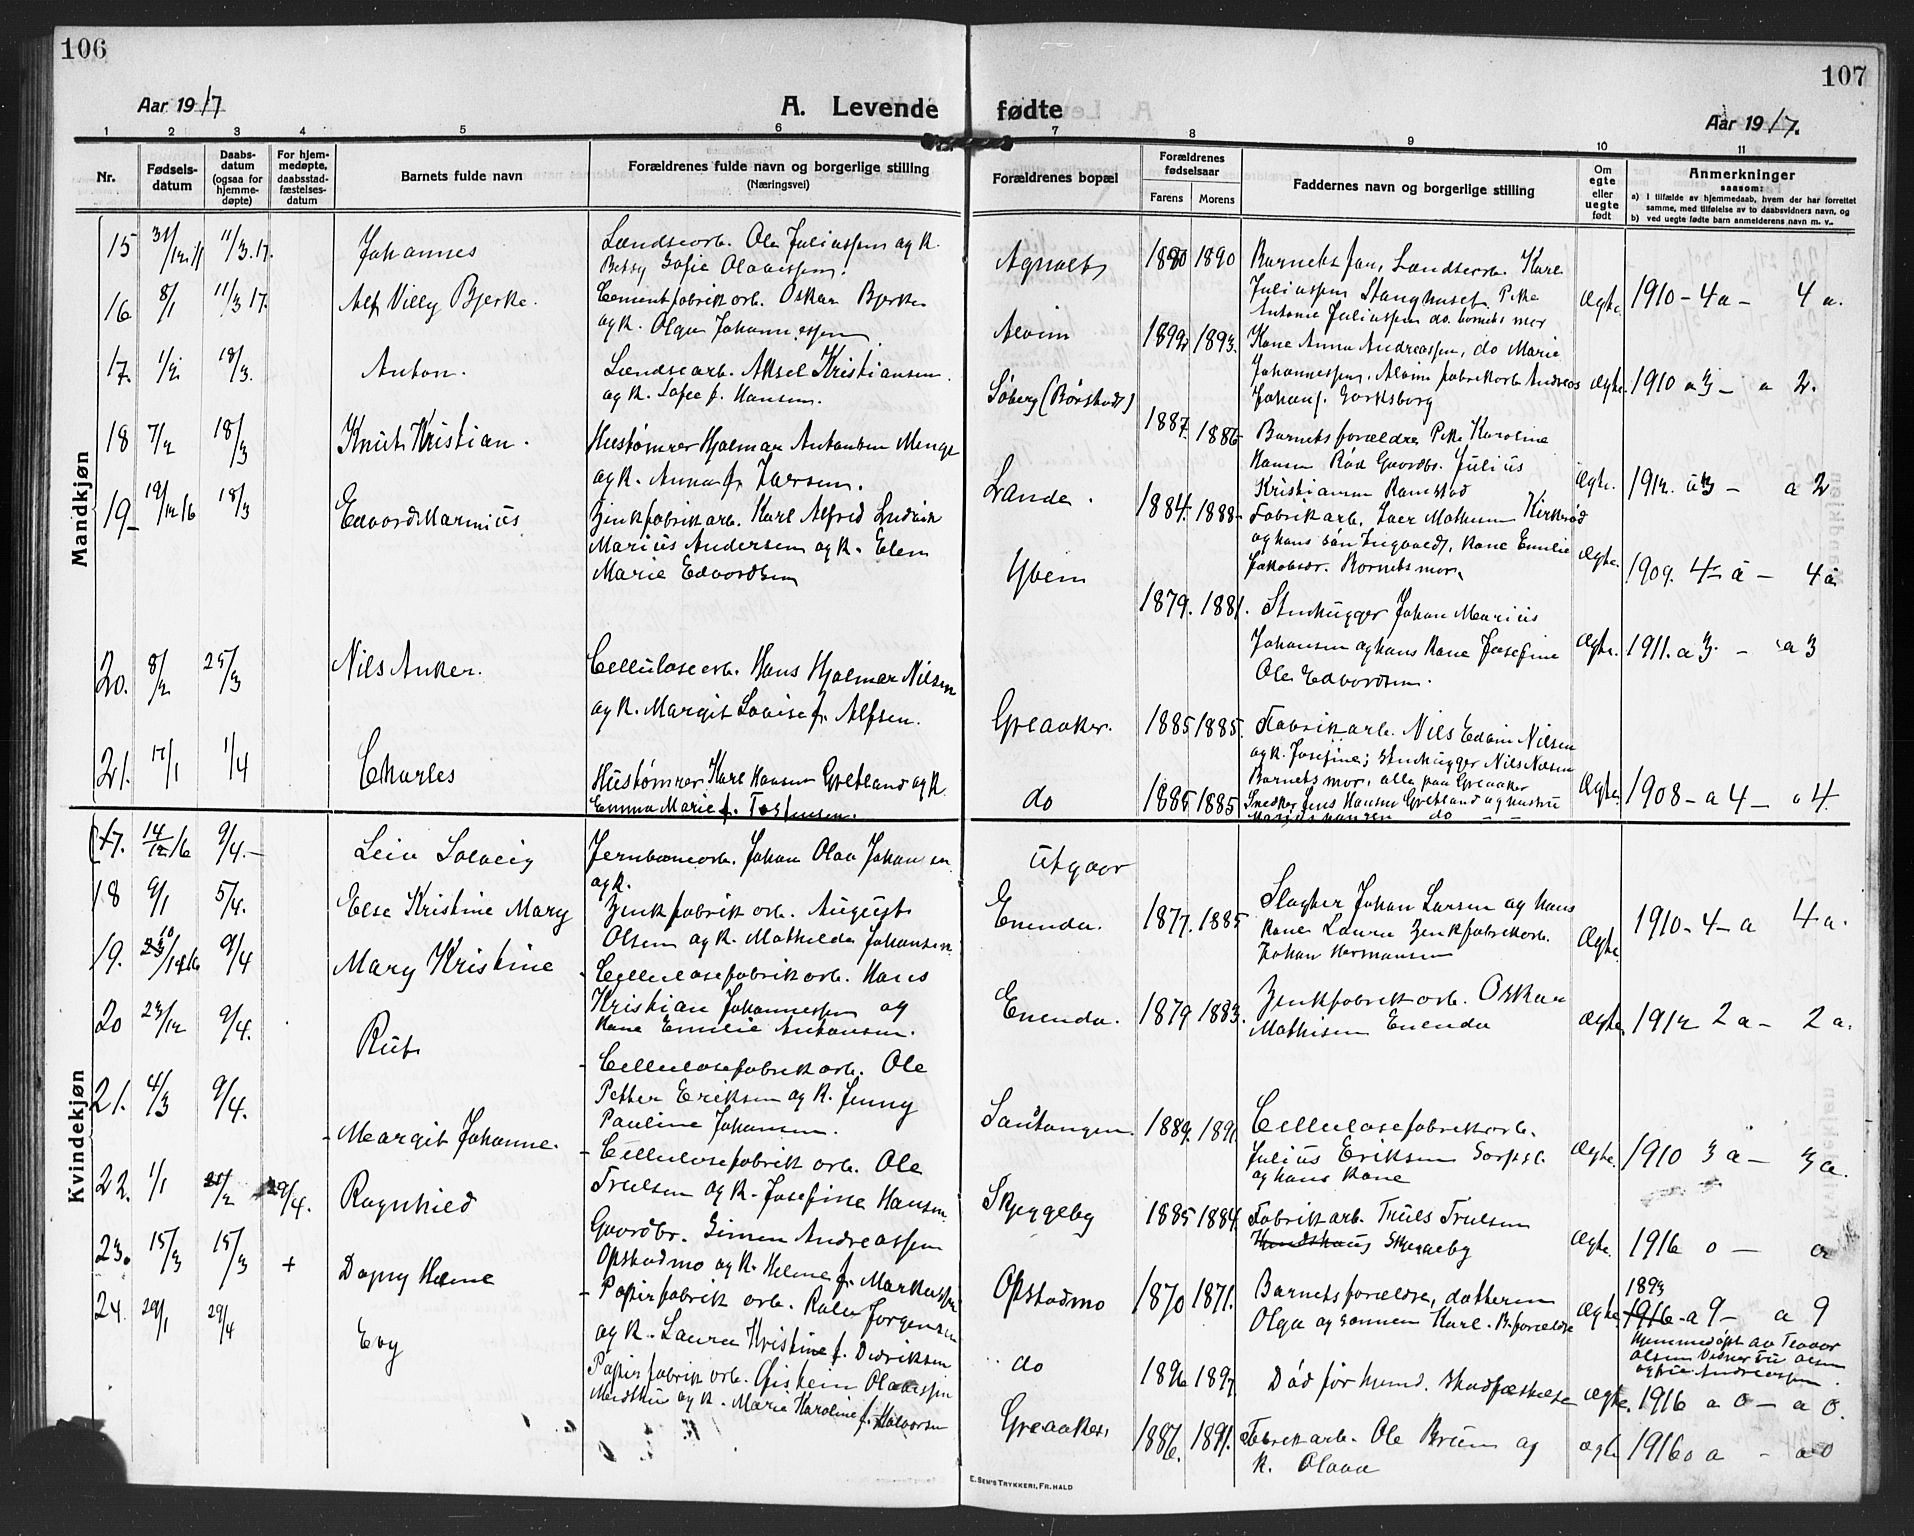 106
Aar 1917
A. Levende
1 2 3 4 5 6
Nr.
Fødsels-
datum
Daabs-
datum
(ogsaa for
hjemme-
døpte)
For hjem-
medøpte,
daabsstad-
fæstelses-
datum
Barnets fulde navn
Forældrenes fulde navn og borgerlige stilling
(Næringsvei)
Mandkjøn
15 31/12.16 11/3.17. Johannes
Lændsearb. Ole Juliussen og K.
Betsy Sofie Olavessen.
16 8/1 11/3 17. Alf Villy Bjerke.
Cementfabrikarb. Oskar Bjerke
og K. Olga Johannessen
17. 1/2 18/3. Anton.
Lændsearb. Aksel Kristiansen
og K. Sofie f. Hansen.
18 7/2 18/3 Knut Kristian.
Hustømrer Hjalmar Antonsen
og K. Anna f. Larsen.
19 19/12 16 18/3 Edvard Marinius
Zinkfabrikarb. Karl Alfred Ludvik
Marius Andersen og K. Elen
Marie Edvardsen
20. 8/2 25/3 Nils Anker.
Cellulosearb. Hans Hjalmar Nilsen
og K. Margit Lovise f. Alfsen.
21. 17/1 1/4 Charles
Hustømrer Karl Hansen Gretland og K.
Emma Marie f. Torstensen.
Kvindekjøn
17. 14/12 16 9/4.- Leiv Solveig
Jernbanearb. Johan Olav Johansen
og K.
18 9/1 5/4. Else Kristine Mary
Zinkfabrik arb. August
Olsen og K. Mathilde Johansen
19. 10/1916 9/4 Mary Kristine
Cellulosefabrikarb. Hans
Kristian Johannessen og
Kane Emilie Antonsen.
20 23/12 9/4. Rut
Cellulosefabrikarb. Ole
Petter Eriksen og K. Jenny
Pauline Johansen.
21. 4/3 9/4. Margit Johanne.
Cellulosefabrik arb. Ole
Trulsen og K. Josefine Hansen
22. 1/1 25/2 29/4. Ragnhild
Gaardbr. Simen Andreassen
Opstadmo og K. Helene f. Markussen
23. 15/3 15/3 + Dagny Helene
Papirfabrik arb. Rolv Jørgensen
og K. Laura Kristine f. Didriksen
24. 29/1 29/4 Evy
Papirfabrik arb. Øistein Olavessen
og K. Marie Karoline f. Halvorsen
107
fødte
Aar 1917.
7 8 9 10 11
Forældrenes bopæl
Forældrenes
fødselsaar
Farens Morens
Faddernes navn og borgerlige stilling
Om
egte
eller
uegte
født
Anmerkninger
saasom:
a) I tilfælde av hjemmedaab, hvem der har forrettet
samme, med tilføielse av to daabsvidners navn, og
b) ved uegte fødte barn anmelderens navn m. v.
Agnalt 1880 1890 Barnets far, Lændsearb. Karl
Juliussen Stanghuset, Pike
Antonie Juliussen do. barnets mor
Ægte. 1910 - 4 a - 4 a.
Alvim 1892 1893. Kone Anna Andreassen, do Marie
Johannessen, Alvim fabrikarb Andreas
Johans. Sarpsborg
Ægte. 1910 a 3 - a 2.
Søberg (Børstad) 1887. 1886 Barnets forældre Pike Karoline
Hansen Rød Gaardbr. Julius
Kristiansen Ramstad
Ægte. 1912. a 3 - a 2
Lande. 1884. 1888 Fabrikarb. Iver Mathisen Kirkerød
og hans søn Ingvald, Kone Emilie
Jakobsen. Barnets mor.
Ægte. 1909. 4 - a - 4 a
Yven 1879. 1881. Stenhugger Johan Marius
Johansen og hans Kone Josefine
Ole Edvardsen.
Ægte. 1911. a 3. - a 3
Greaaker. 1885 1885. Fabrikarb. Nils Edvin Nilsen
og K. Josefine; Stenhugger Nils Nilsen
Barnets mor, alle paa Greaaker
Ægte. 1908 - a 4 - a 4.
do 1885 1885 Snedker Jens Hansen Gretland og hustru
do
utgaar
Enenda. 1877. 1885 Slagter Johan Larsen og hans
Kone Laura Zinkfabrikarb.
Johan Hermansen
Ægte. 1910 - 4 - a 4 a.
Enenda. 1879 1883. Zinkfabrikarb. Oskar
Mathisen Enenda
Ægte. 1912 2 a - 2 a.
Sandtangen. 1889. 1891 Cellulosefabrikarb.
Julius Eriksen Sarpsb.
og hans Kone
Ægte. 1910 3 a - 3 a.
Skjeggeby 1885 1884. Fabrikarb. Truls Trulsen
Skjeggeby
Ægte. 1916 0 - 0
Opstadmo 1870 1871. Barnets forældre, datteren
Olga og sønnen Karl. B. forældre
Ægte. 1893
1916 - a 9 - a 9
do 1896 1897. Død før hjemd. stadfæstelse
Hjemmedøpt av
og fru Andreassen.
Ægte. 1916 a 0 - a 0.
Greaaker. 1886. 1891. Fabrikarb. Ole Bruun og
K. Olava
ægte 1916 0 a - a 0
E. SEM'S TRYKKERI, FR.HALD